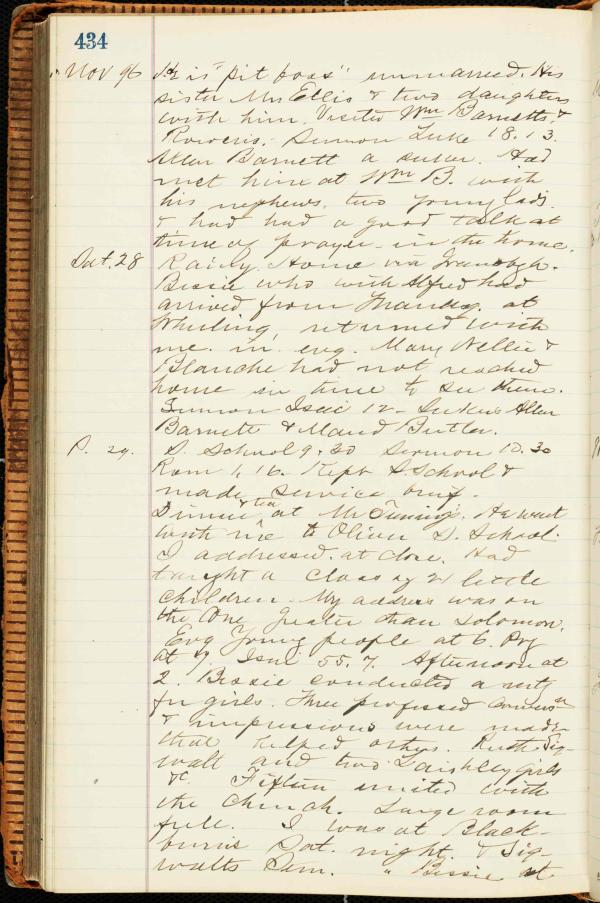 434
Nov 96 He is "pit boss" unmarried. His
sister Mrs Ellis & two daughters
with him. Visited Wm Barnetts, &
Sermon Luke 18.13.
Allen Barnett a seeker. Had
met him at Wm B. with
his nephews, two young lads.
& had had a good talk at
time of prayer in the home.
Sat. 28 Rainy. Home via
Bessie who with Alfred had
arrived from at
returned with
me in evg. Mary Nellie &
Blanche had not reached
home in time to see them.
Sermon Isai 12 - Seekers Allen
Barnett & Maud Butler.
S. 29. S. School 9.30 Sermon 10.30
Rom 1.16. Kept S School &
made service brief.
Dinner & tea at Mr He went
with me to Oliver S. School.
I addressed at close. Had
taught a class of 21 little
children. My address was on
the One greater than Solomon.
Evg Young people at 6. Prg
at 7 Isai 55.7. Afternoon at
2. Bessie conducted a mtg
for girls. Three professed conversn
& impressions were made
that helped others. Ruth Sig-
walt and two girls
&c. Fifteen united with
the Church. Large room
full. I was at Black-
burns Sat. night. & Sig-
walts Sun. " Bessie at